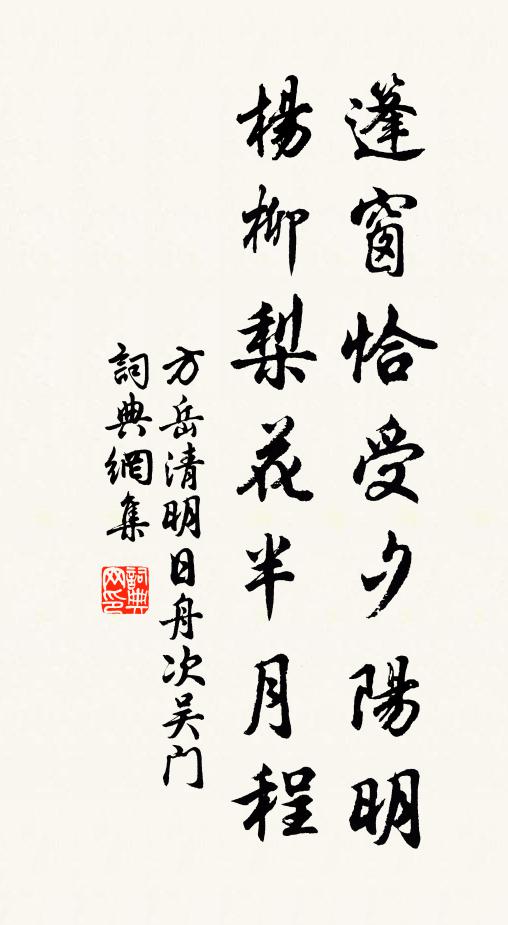 蓬窗恰受夕陽明
楊柳梨花半月程
方岳清明日舟次吴门
詞典網集
詞典网印